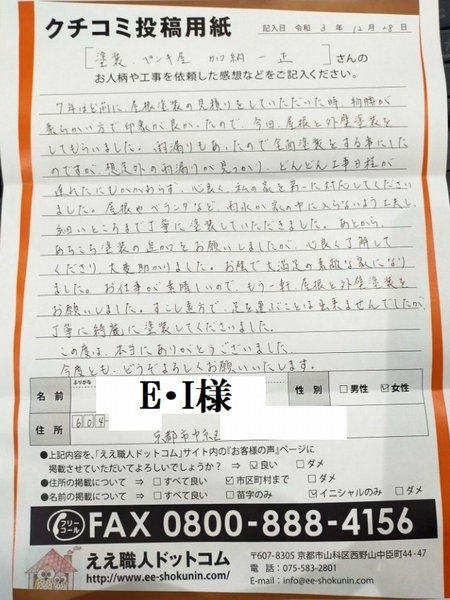 クチコミ投稿用紙
記入日 令和 3 年 12 月 28 日
[塗装・ペンキ屋 加納 一正] さんの
お人柄や工事を依頼した感想などをご記入ください。
7年ほど前に、屋根塗装の見積りをしていただいた時、物腰が
柔らかい方で印象が良かったので、今回、屋根と外壁塗装を
してもらいました。雨漏りもあったので全面塗装をする事にした
のですが、想定外の雨漏りが見つかり、どんどん工事日程が
遅れたにもかかわらず、心良く、私の家を第一に対応してください
ました。屋根やベランダなど、雨水が家の中に入らないよう工夫し、
細いところまで丁寧に塗装していただきました。あとから、
あちこち塗装の追加をお願いしましたが、心良く了解して
くださり、大変助かりました。お陰で大満足の素敵な家になり
ました。お仕事が素晴しいので、もう一軒、屋根と外壁塗装を
お願いしました。すこし遠方で、足を運ぶことは出来ませんでしたが、
丁寧に綺麗に塗装してくださいました。
この度は、本当にありがとうございました。
今度とも、どうぞよろしくお願いいたします。
ふりがな
名前 E・I様 性別 □男性 ☑女性
住所 604-
京都市中京区
●上記内容を、「ええ職人ドットコム」サイト内の『お客様の声』ページに
掲載させていただいてよろしいでしょうか? ⇒ ☑良い □ダメ
●住所の掲載について ⇒ □すべて良い ☑市区町村まで □ダメ
●名前の掲載について ⇒ □すべて良い □苗字のみ ☑イニシャルのみ □ダメ
フリーコール FAX 0800-888-4156
ええ職人ドットコム
http://www.ee-shokunin.com
〒607-8305 京都市山科区西野山中臣町44-47
電話:075-583-2801
E-mail:info@ee-shokunin.com